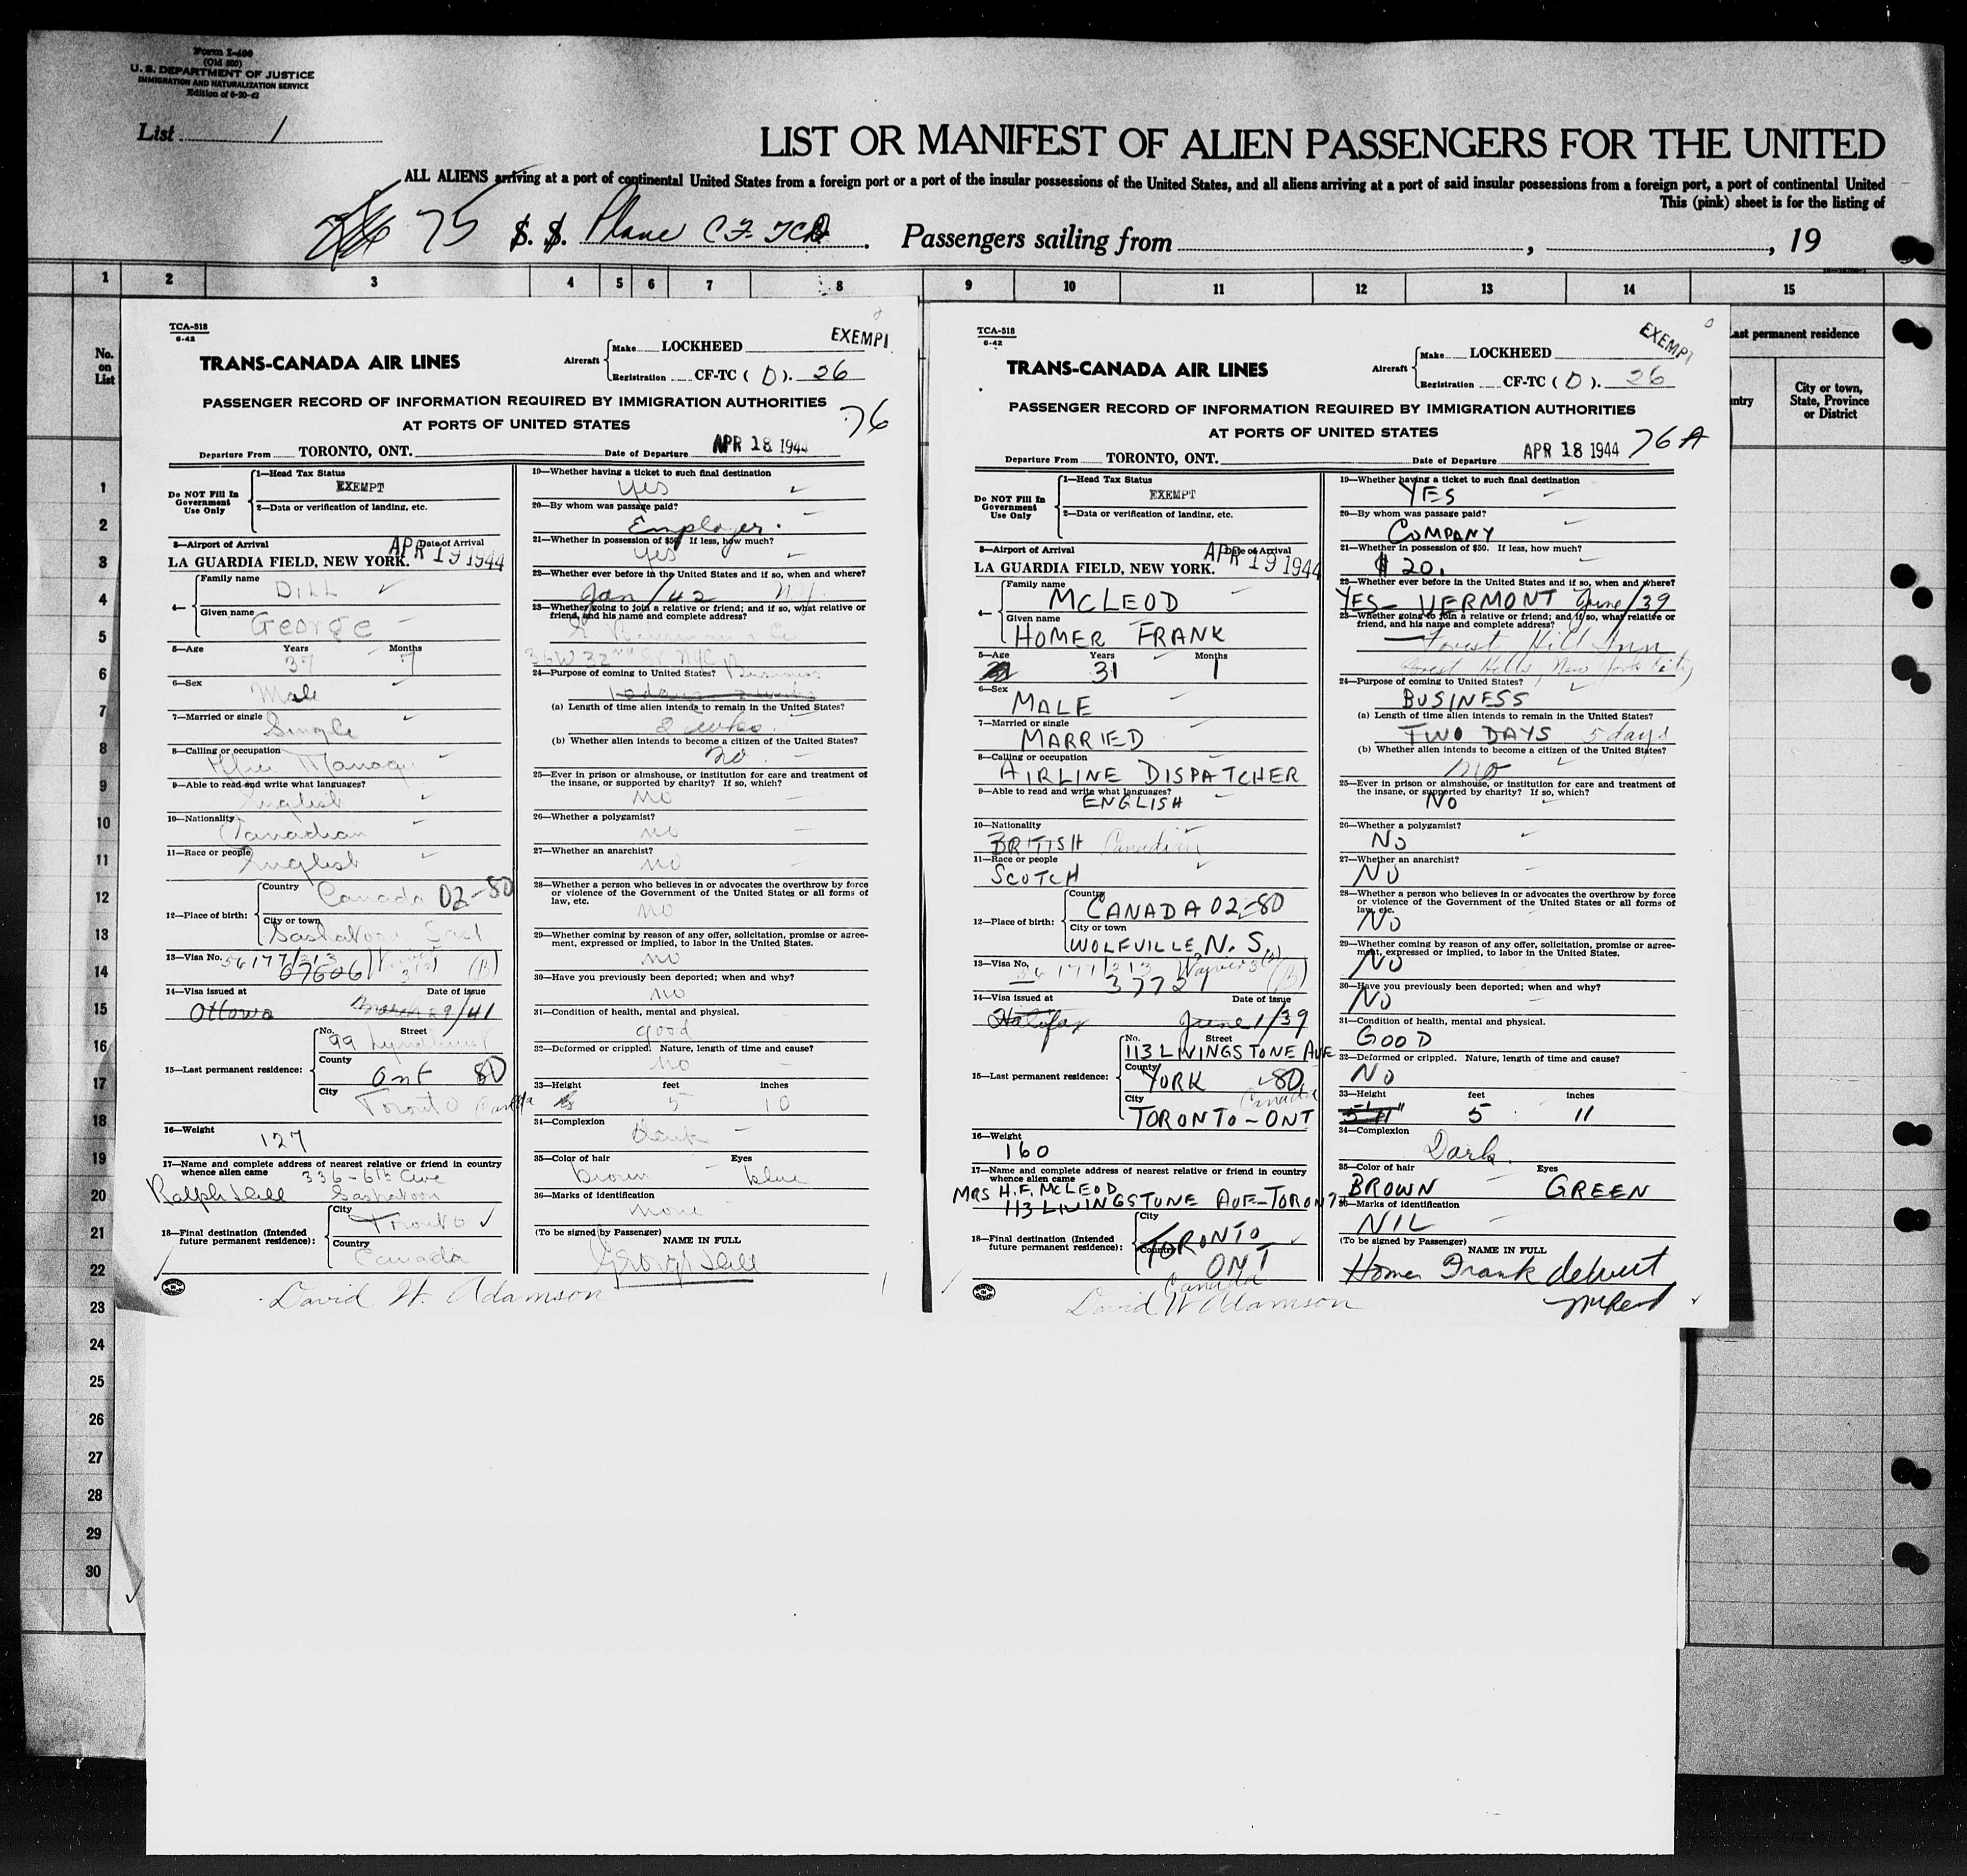 Form I-400
(Old 500)
U. S. DEPARTMENT OF JUSTICE
IMMIGRATION AND NATURALIZATION SERVICE
Edition of 6-20-42
List 1
LIST OR MANIFEST OF ALIEN PASSENGERS FOR THE UNITED
ALL ALIENS arriving at a port of continental United States from a foreign port or a port of the insular possessions of the United States, and all aliens arriving at a port of said insular possessions from a foreign port, a port of continental United
This (pink) sheet is for the listing of
75 S. S. Plane CF-TCD. Passengers sailing from , , 19
1 2 3 4 5 6 7 8 9 10 11 12 13 14 15
No. on List
Last permanent residence
ntry
City or town, State, Province or District
1
2
3
4
5
6
7
8
9
10
11
12
13
14
15
16
17
18
19
20
21
22
23
24
25
26
27
28
29
30
TCA-518
6-42
EXEMPT
TRANS-CANADA AIR LINES
Aircraft Make LOCKHEED
Registration CF-TC ( D ). 26
PASSENGER RECORD OF INFORMATION REQUIRED BY IMMIGRATION AUTHORITIES
AT PORTS OF UNITED STATES
76
Departure From TORONTO, ONT. Date of Departure APR 18 1944
Do NOT Fill In Government Use Only
1—Head Tax Status
EXEMPT
2—Data or verification of landing, etc.
3—Airport of Arrival Date of Arrival
LA GUARDIA FIELD, NEW YORK. APR 19 1944
4— Family name
DILL
Given name
George
5—Age Years Months
37 7
6—Sex
Male
7—Married or single
Single
8—Calling or occupation
Office Manag
9—Able to read and write what languages?
English
10—Nationality
Canadian
11—Race or people
English
12—Place of birth: Country
Canada 02-80
City or town
Saskatoon Sask
13—Visa No. 56177/313
67606 (B)
14—Visa issued at Date of issue
Ottawa March 29/41
15—Last permanent residence: No. Street
99 Lyndhurst
County
Ont 80
City
Toronto Canada
16—Weight
127
17—Name and complete address of nearest relative or friend in country
whence alien came 336-6th Ave
Ralph Dill Saskatoon
18—Final destination (Intended future permanent residence): City
Toronto
Country
Canada
David W. Adamson
19—Whether having a ticket to such final destination
yes
20—By whom was passage paid?
Employer.
21—Whether in possession of $50. If less, how much?
yes
22—Whether ever before in the United States and if so, when and where?
Jan/42 N.Y.
23—Whether going to join a relative or friend; and if so, what relative or
friend, and his name and complete address?
36W 32nd St NYC
24—Purpose of coming to United States? Business
10 days 2 weeks
(a) Length of time alien intends to remain in the United States?
2 wks.
(b) Whether alien intends to become a citizen of the United States?
no.
25—Ever in prison or almshouse, or institution for care and treatment of
the insane, or supported by charity? If so, which?
no
26—Whether a polygamist?
no
27—Whether an anarchist?
no
28—Whether a person who believes in or advocates the overthrow by force
or violence of the Government of the United States or all forms of
law, etc.
no
29—Whether coming by reason of any offer, solicitation, promise or agree-
ment, expressed or implied, to labor in the United States.
no
30—Have you previously been deported; when and why?
no
31—Condition of health, mental and physical.
good
32—Deformed or crippled. Nature, length of time and cause?
no
33—Height feet inches
5 10
34—Complexion
dark
35—Color of hair Eyes
brown blue
36—Marks of identification
none
(To be signed by Passenger) NAME IN FULL
George Dill
TCA-518
6-42
EXEMPT
TRANS-CANADA AIR LINES
Aircraft Make LOCKHEED
Registration CF-TC ( D ). 26
PASSENGER RECORD OF INFORMATION REQUIRED BY IMMIGRATION AUTHORITIES
AT PORTS OF UNITED STATES
Departure From TORONTO, ONT. Date of Departure APR 18 1944 76A
Do NOT Fill In Government Use Only
1—Head Tax Status
EXEMPT
2—Data or verification of landing, etc.
3—Airport of Arrival Date of Arrival
LA GUARDIA FIELD, NEW YORK. APR 19 1944
4— Family name
MCLEOD
Given name
HOMER FRANK
5—Age Years Months
31 1
6—Sex
MALE
7—Married or single
MARRIED
8—Calling or occupation
AIRLINE DISPATCHER
9—Able to read and write what languages?
ENGLISH
10—Nationality
BRITISH Canadian
11—Race or people
SCOTCH
12—Place of birth: Country
CANADA 02-80
City or town
WOLFVILLE, N. S.
13—Visa No. 56177/313 Waiver 3(2)
37727 (B)
14—Visa issued at Date of issue
Halifax June 1/39
15—Last permanent residence: No. Street
113 LIVINGSTONE AVE
County
YORK 80
City Canada
TORONTO - ONT
16—Weight
160
17—Name and complete address of nearest relative or friend in country
whence alien came
MRS H.F. MCLEOD
113 LIVINGSTONE AVE-TORONTO
18—Final destination (Intended future permanent residence): City
TORONTO
Country
ONT
Canada
David W Adamson
19—Whether having a ticket to such final destination
YES
20—By whom was passage paid?
COMPANY
21—Whether in possession of $50. If less, how much?
$ 20.
22—Whether ever before in the United States and if so, when and where?
YES - VERMONT June/39
23—Whether going to join a relative or friend; and if so, what relative or
friend, and his name and complete address?
Forest Hill Inn
Forest Hills, New York City
24—Purpose of coming to United States?
BUSINESS
(a) Length of time alien intends to remain in the United States?
TWO DAYS 5 days
(b) Whether alien intends to become a citizen of the United States?
no
25—Ever in prison or almshouse, or institution for care and treatment of
the insane, or supported by charity? If so, which?
NO
26—Whether a polygamist?
NO
27—Whether an anarchist?
NO
28—Whether a person who believes in or advocates the overthrow by force
or violence of the Government of the United States or all forms of
law, etc.
NO
29—Whether coming by reason of any offer, solicitation, promise or agree-
ment, expressed or implied, to labor in the United States.
NO
30—Have you previously been deported; when and why?
NO
31—Condition of health, mental and physical.
GOOD
32—Deformed or crippled. Nature, length of time and cause?
NO
33—Height feet inches
5'11" 5 11
34—Complexion
Dark.
35—Color of hair Eyes
BROWN GREEN
36—Marks of identification
NIL
(To be signed by Passenger) NAME IN FULL
Homer Frank
McLeod